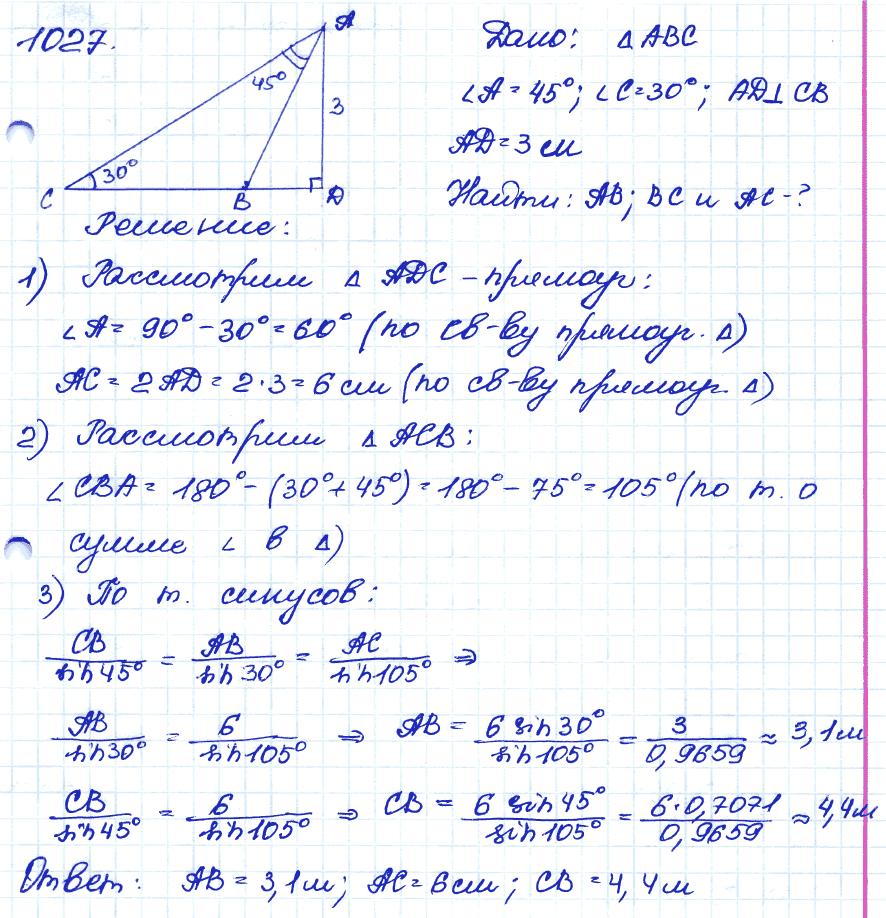 1027.
A
45°
3
30°
C
B
D
Дано: △ABC
∠A = 45°; ∠C = 30°; AD⊥CB
AD = 3 см
Найти: AB; BC и AC - ?
Решение:
1) Рассмотрим △ ADC – прямоуг:
∠A = 90° - 30° = 60° (по св-ву прямоуг. △)
AC = 2AD = 2·3 = 6 см (по св-ву прямоуг. △)
2) Рассмотрим △ ACB:
∠CBA = 180° - (30° + 45°) = 180° - 75° = 105° (по т. о
сумме ∠ в △)
3) По т. синусов:
CB/sin45° = AB/sin30° = AC/sin105° ⇒
AB/sin30° = 6/sin105° ⇒ AB = 6 sin30°/sin105° = 3/0,9659 ≈ 3,1м
CB/sin45° = 6/sin105° ⇒ CB = 6 sin45°/sin105° = 6·0,7071/0,9659 ≈ 4,4м
Ответ: AB = 3,1м; AC = 6см; CB = 4,4м